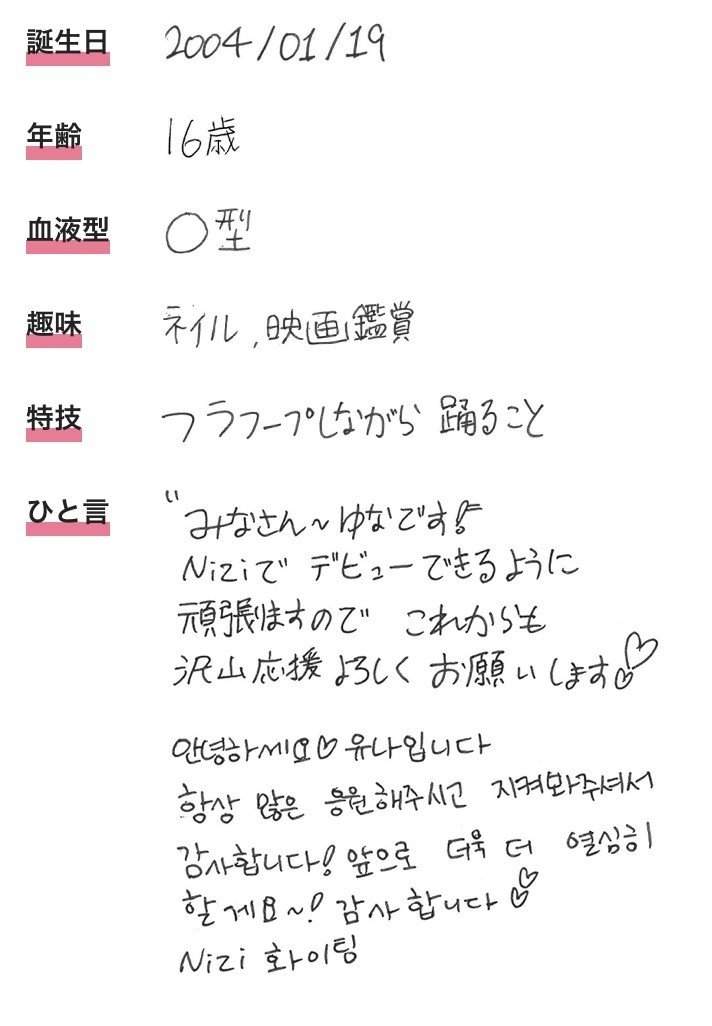 誕生日 2004/01/19
年齢 16歳
血液型 O型
趣味 ネイル,映画鑑賞
特技 フラフープしながら 踊ること
ひと言 "みなさん~ゆなです♬
Niziで デビューできるように
頑張りますので これからも
沢山応援 よろしく お願いします♡♡
안녕하세요♡ 유나입니다
항상 많은 응원해주시고 지켜봐주셔서
감사합니다! 앞으로 더욱 더 열심히
할게요~! 감사합니다♡♡
Nizi 화이팅